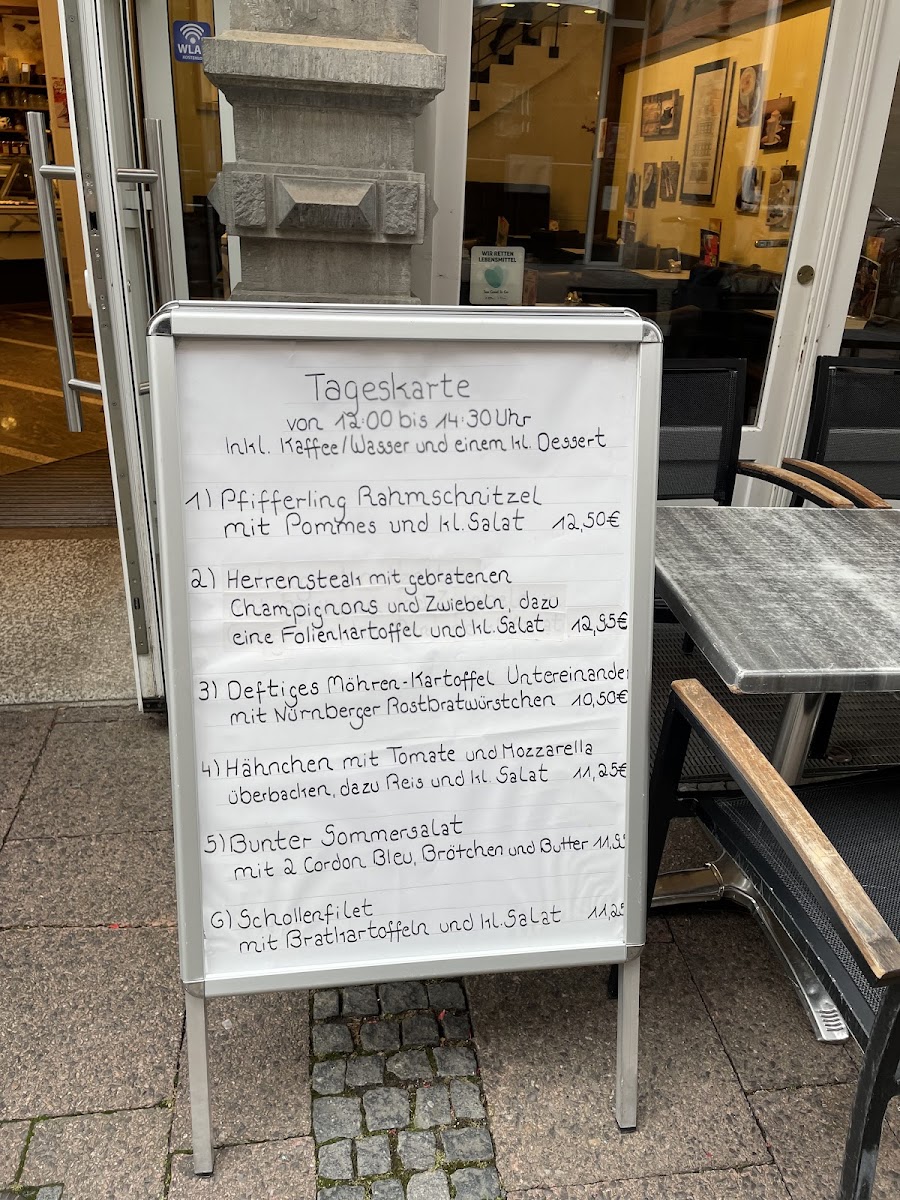 WLA
WIR RETTEN
LEBENSMITTEL
Tageskarte
von 12:00 bis 14:30 Uhr
Inkl. Kaffee/Wasser und einem kl. Dessert
1) Pfifferling Rahmschnitzel
mit Pommes und kl. Salat 12,50€
2) Herrensteak mit gebratenen
Champignons und Zwiebeln, dazu
eine Folienkartoffel und kl. Salat 12,95€
3) Deftiges Möhren-Kartoffel Untereinander
mit Nürnberger Rostbratwürstchen 10,50€
4) Hähnchen mit Tomate und Mozzarella
überbacken, dazu Reis und kl. Salat 11,25€
5) Bunter Sommersalat
mit 2 Cordon Bleu, Brötchen und Butter 11,95
6) Schollenfilet
mit Bratkartoffeln und kl. Salat 11,25